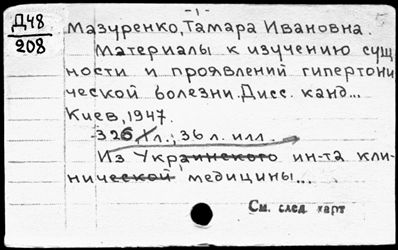 - 1 -
Д48
208
Мазуренко, Тамара Ивановна.
Материалы к изучению сущ
ности и проявлений гипертони
ческой болезни. Дисс. канд...
Киев, 1947.
326 л.; 36 л. илл.
Из Украинского ин-та кли-
нической медицины...
См. след. карт